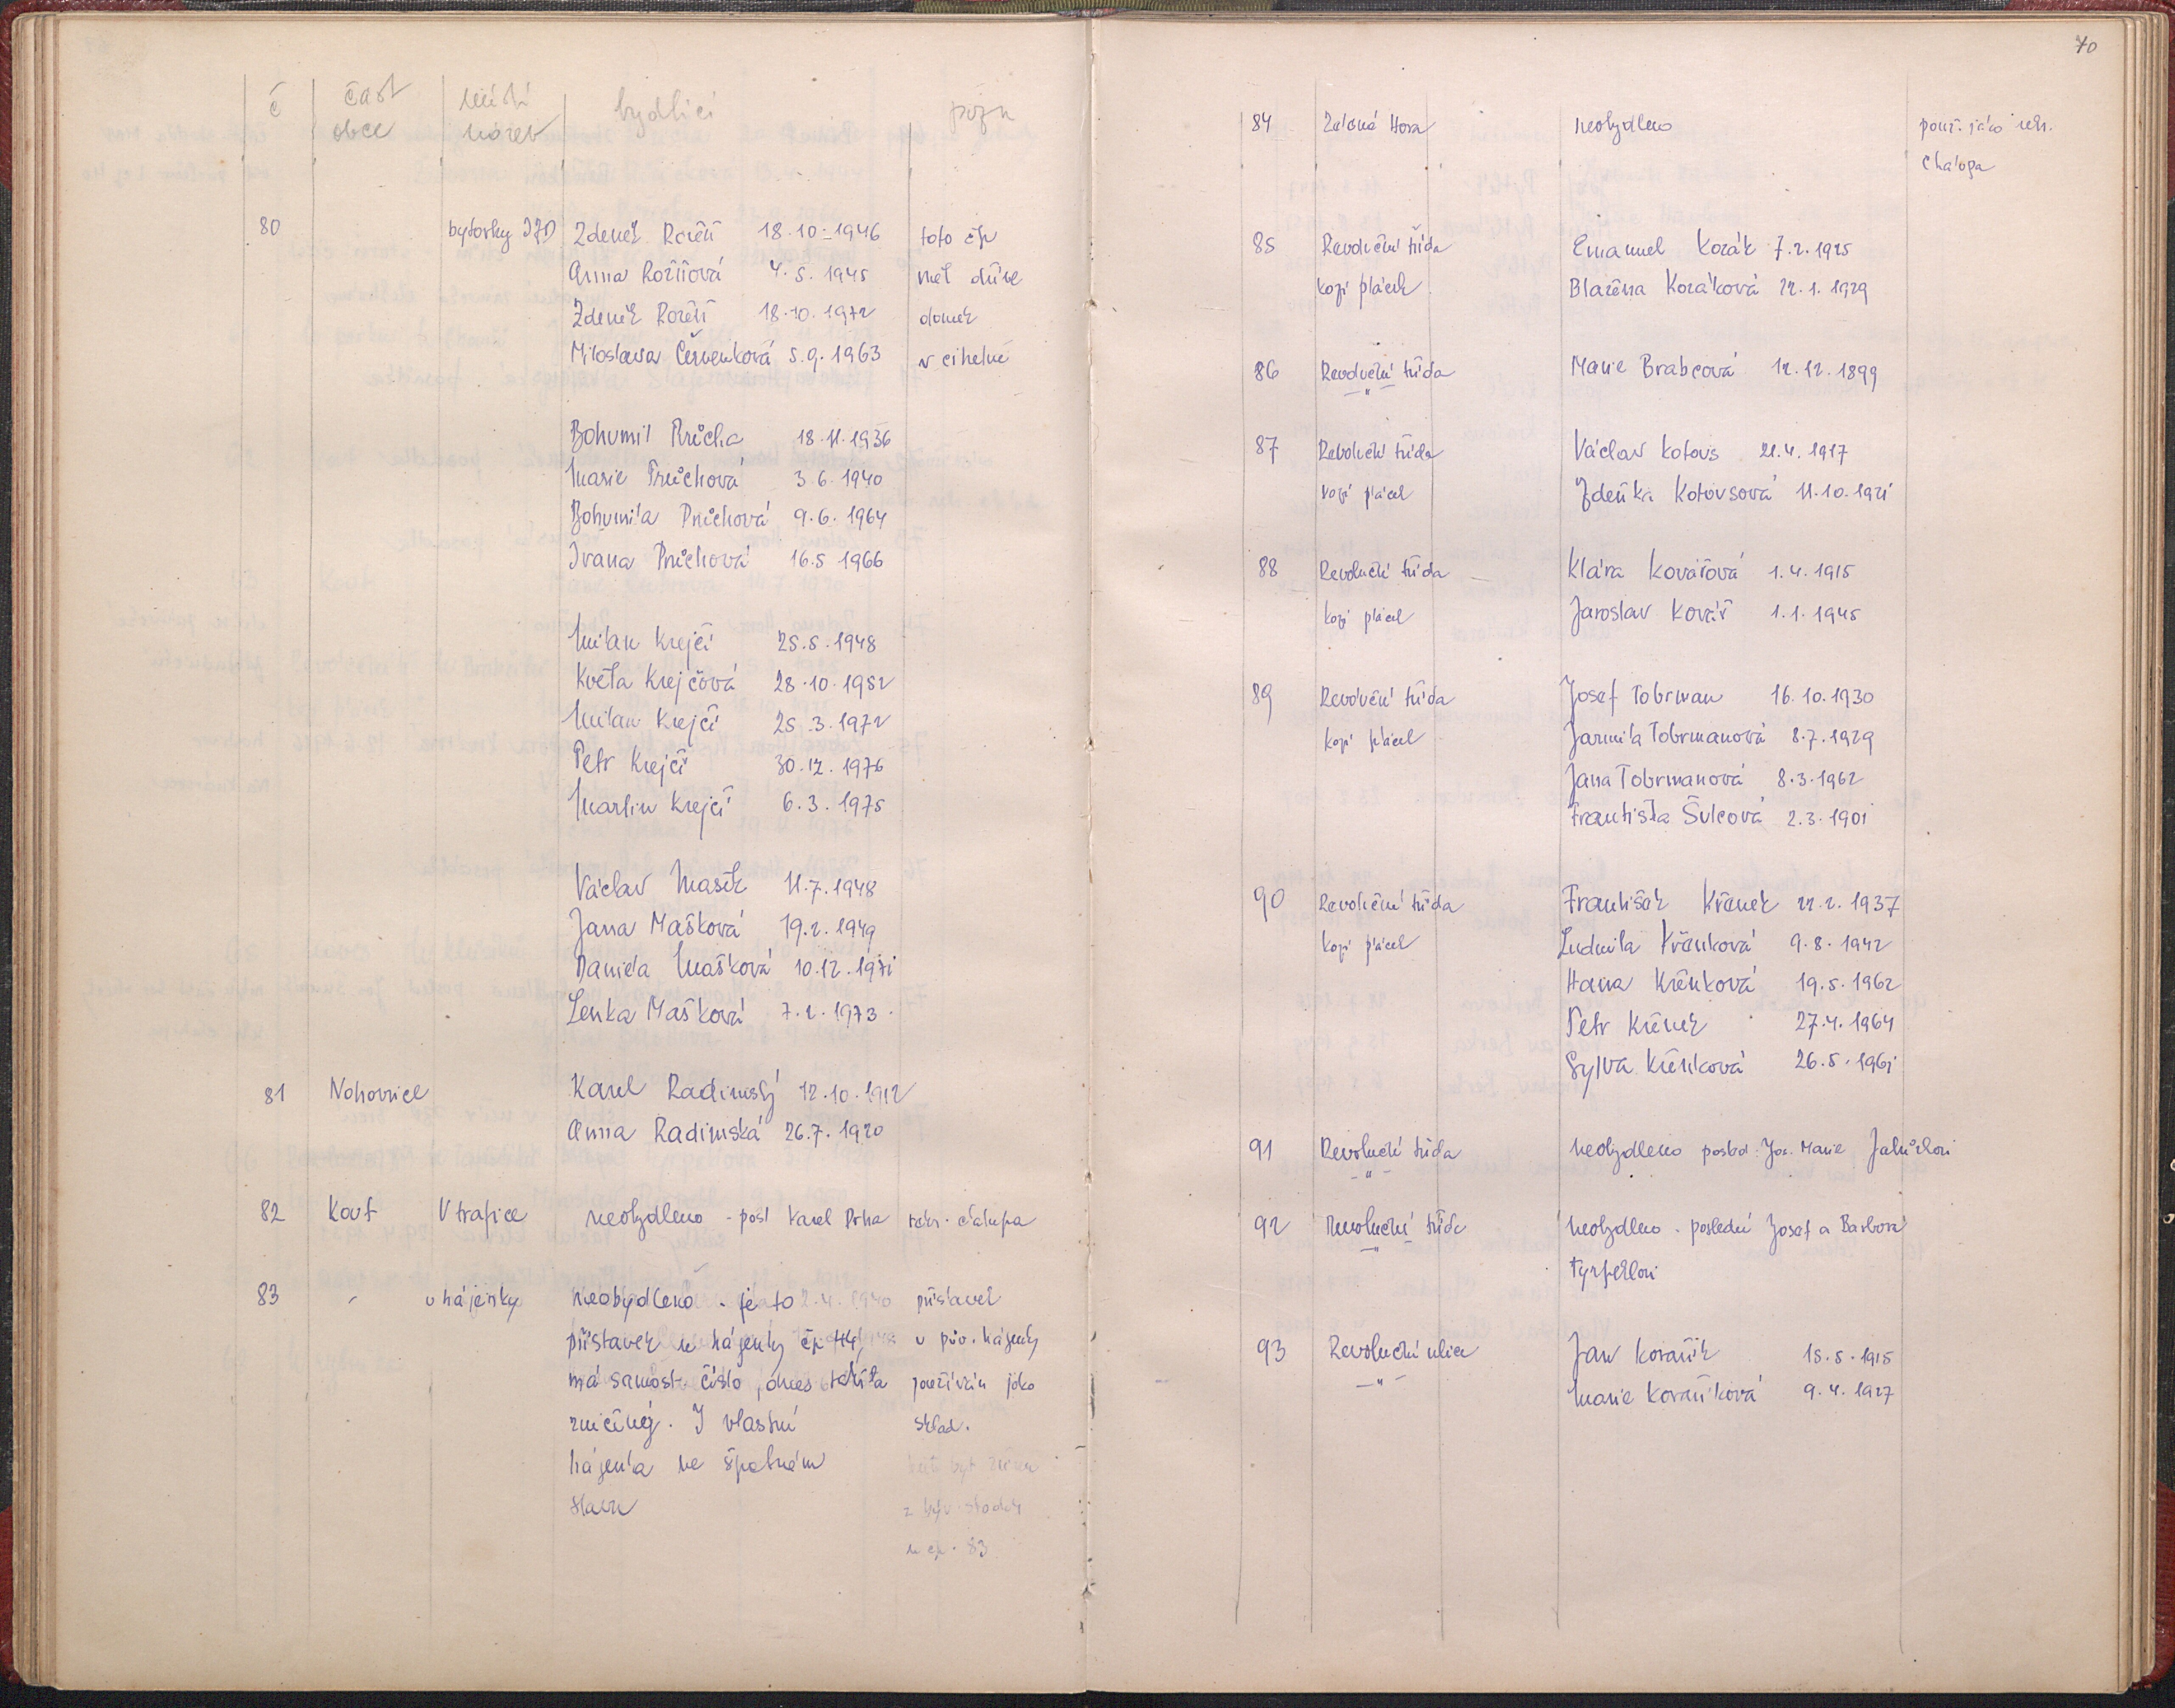 č část místí bydlící pozn
obce název
80 bytovky JZD Zdeněk Rožeň 18.10.1946 toto čp
Anna Rožňová 4.5.1945 měl dříve
Zdeněk Rožeň 18.10.1972 domek
Miloslava Červenková 5.9.1963 v cihelně
Bohumil Průcha 18.11.1936
Marie Průchová 3.6.1940
Bohumila Průchová 9.6.1964
Ivana Průchová 16.5 1966
Milan Krejčí 25.5.1948
Květa Krejčová 28.10.1952
Milan Krejčí 25.3.1972
Petr Krejčí 30.12.1976
Martin Krejčí 6.3.1975
Václav Mašek 11.7.1948
Jana Mašková 19.2.1949
Daniela Mašková 10.12.1971
Lenka Mašková 7.2.1973
81 Nohovnice Karel Radimský 12.10.1912
Anna Radimská 26.7.1920
82 Kout V trafice neobydleno - posl Karel Drha rekr. chalupa
83 - u hájenky neobydleno - je to přístavek
přístavek u hájenky čp 44, u pův. hájenky
má samost. číslo, dnes používán jako
zničený. I vlastní sklad.
hájenka ve špatném
stavu z býv.
u čp. 83
70
84 Zelená Hora neobydleno použ. jako rekr.
chalupa
85 Revoluční třída Emanuel Kozák 7.2.1925
kozí plácek Blažena Kozáková 22.1.1929
86 Revoluční třída Marie Brabcová 12.12.1899
-"-
87 Revoluční třída Václav Kotous 21.4.1917
kozí plácek Zdeňka Kotousová 11.10.1921
88 Revoluční třída Klára Kovářová 1.4.1915
kozí plácek Jaroslav Kovář 1.1.1945
89 Revoluční třída Josef Tobrman 16.10.1930
kozí plácek Jarmila Tobrmanová 8.7.1929
Jana Tobrmanová 8.3.1962
Františka Šulcová 2.3.1901
90 Revoluční třída František Křenek 22.2.1937
kozí plácek Ludmila Křenková 9.8.1942
Hana Křenková 19.5.1962
Petr Křenek 27.4.1964
Sylva Křenková 26.5.1961
91 Revoluční třída neobydleno posled. Jos. Marie
-"-
92 Revoluční třída neobydleno - poslední Josef a Barbora
-"-
93 Revoluční ulice Jan Kovařík 15.5.1915
-"- Marie Kovaříková 9.4.1927